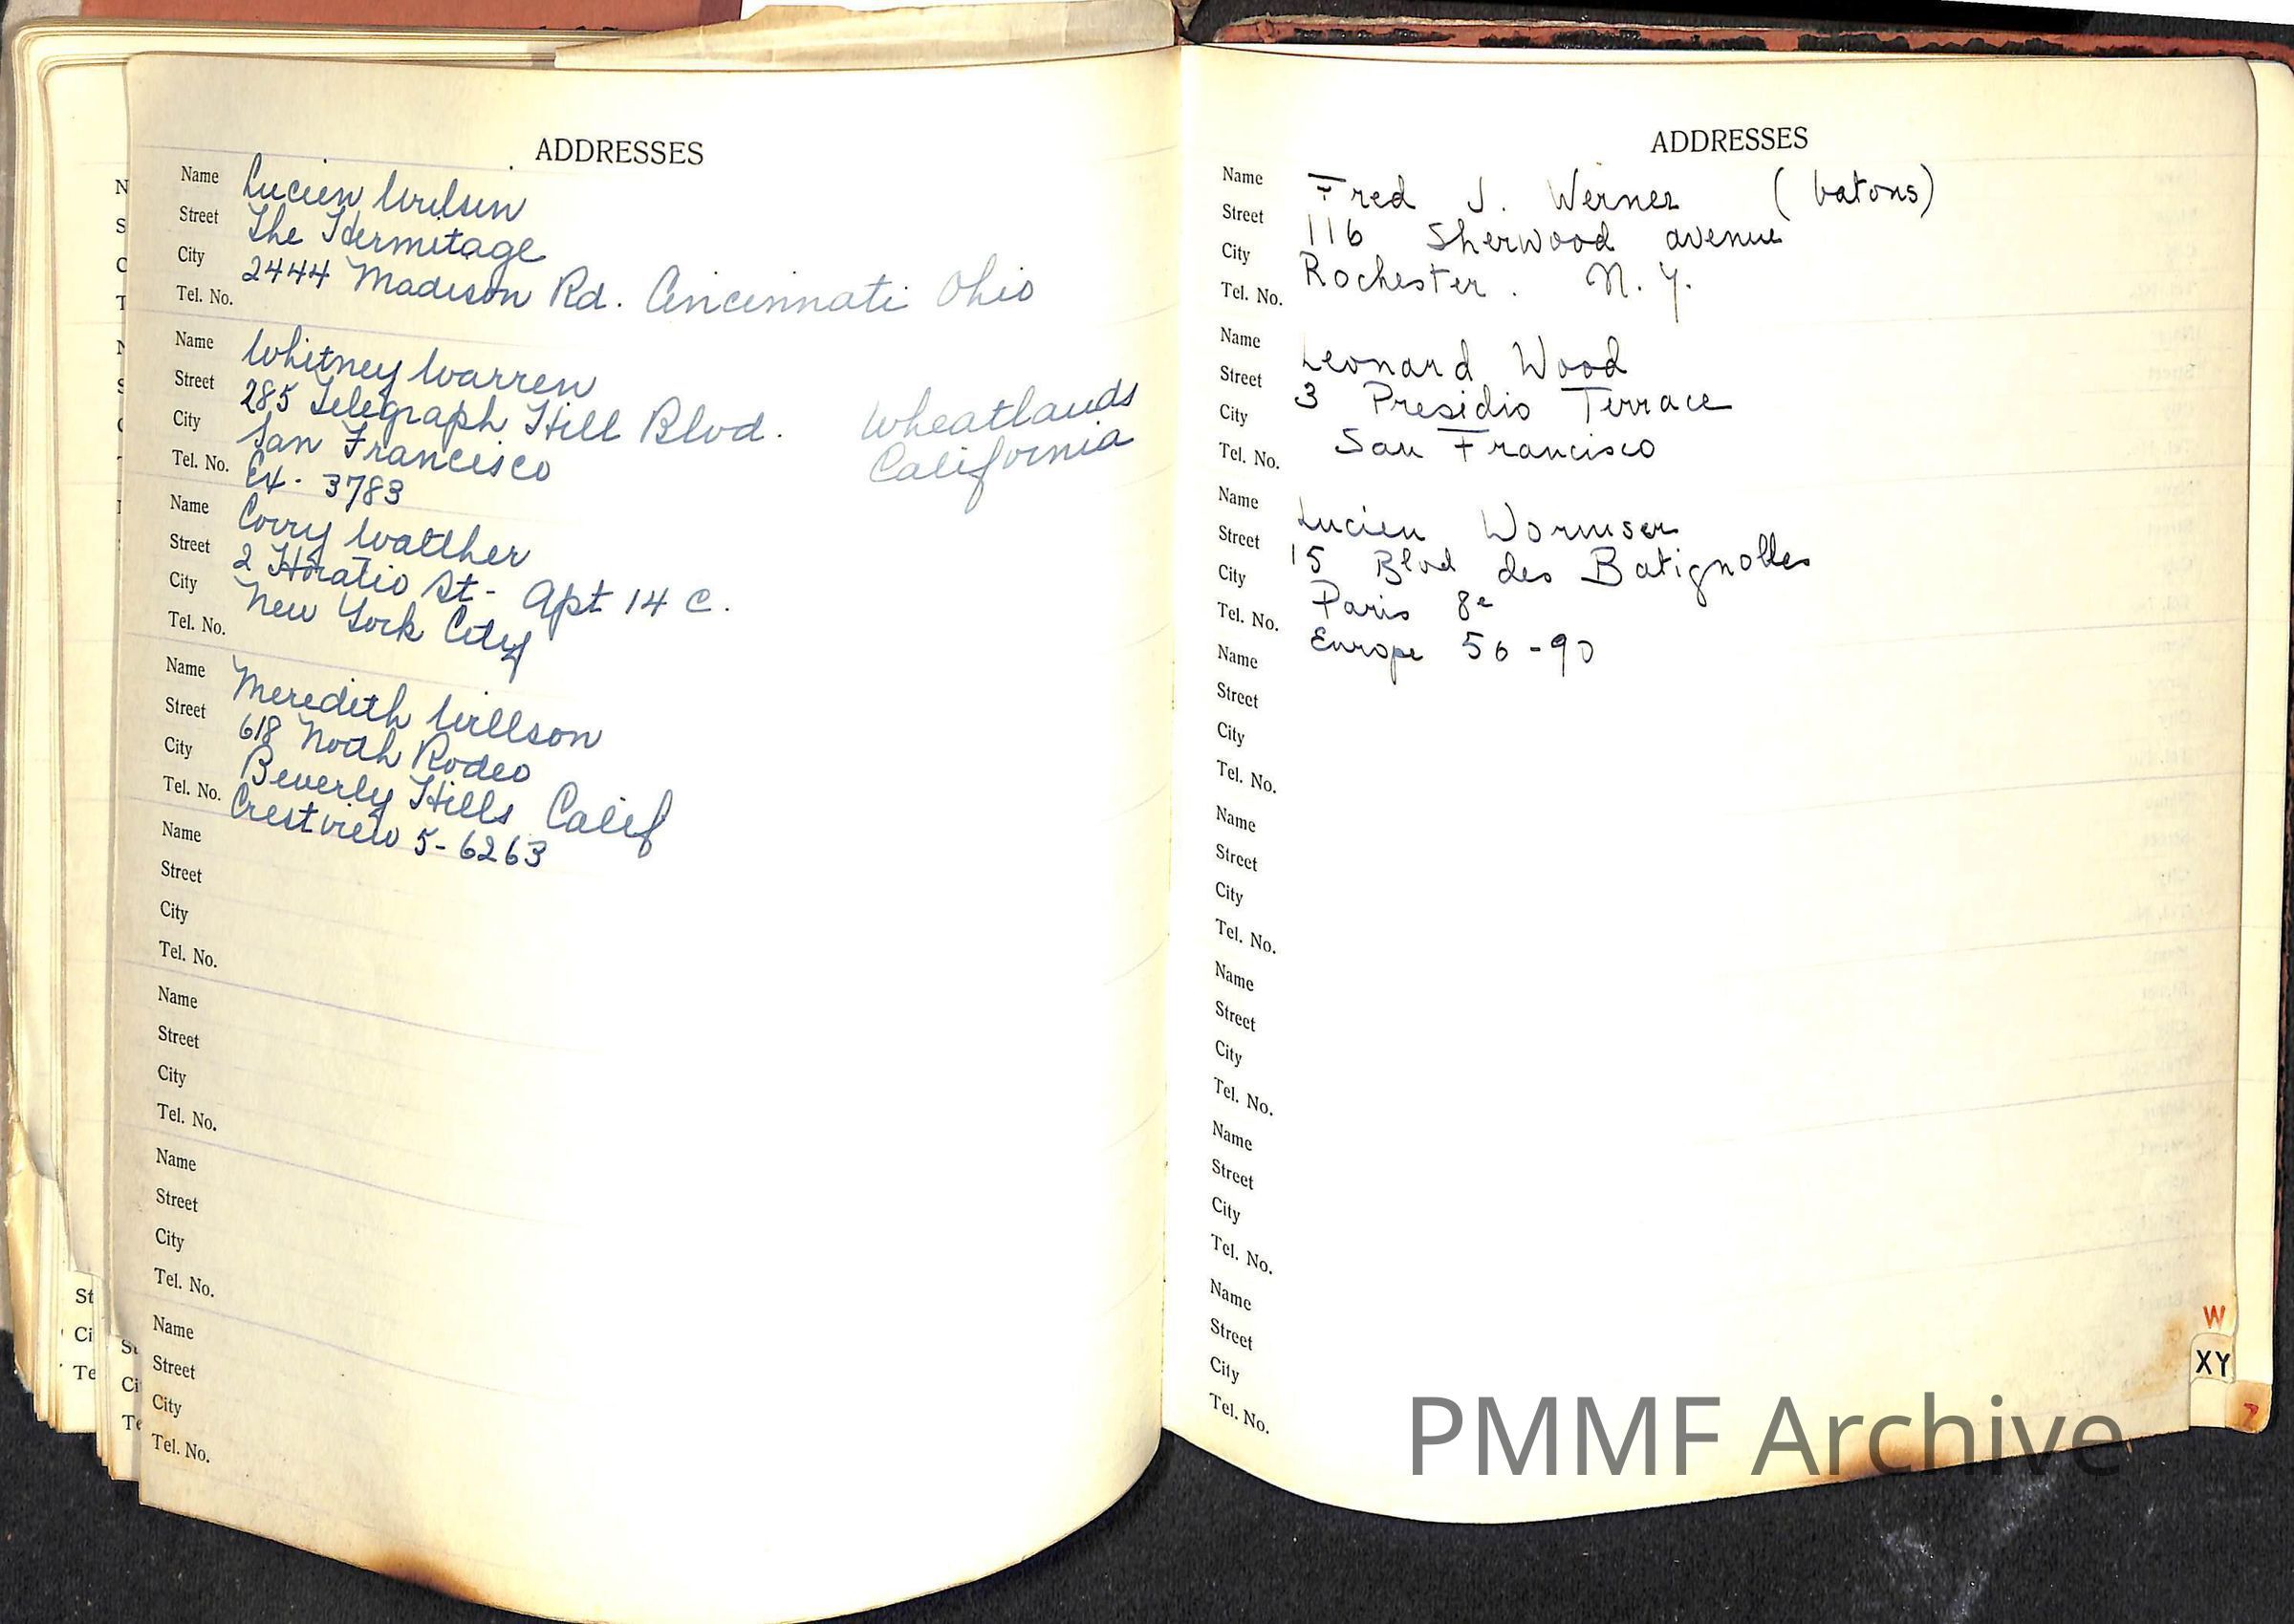 ADDRESSES
Name Lucien Wulsin
Street The Hermitage
City 2444 Madison Rd. Cincinnati Ohio
Tel. No.
Name Whitney Warren
Street 285 Telegraph Hill Blvd. Wheatlands
City San Francisco California
Tel. No. Ex. 3783
Name Corry Walther
Street 2 Horatio St - Apt 14 C.
City New York City
Tel. No.
Name Meredith Willson
Street 618 North Rodeo
City Beverly Hills Calif
Tel. No. Crestview 5-6263
Name
Street
City
Tel. No.
Name
Street
City
Tel. No.
Name
Street
City
Tel. No.
Name
Street
City
Tel. No.
ADDRESSES
Name Fred J. Werner (batons)
Street 116 Sherwood avenue
City Rochester. N.Y.
Tel. No.
Name Leonard Wood
Street 3 Presidio Terrace
City San Francisco
Tel. No.
Name Lucien Wormser
Street 15 Blvd des Batignolles
City Paris 8e
Tel. No. Europe 56-90
Name
Street
City
Tel. No.
Name
Street
City
Tel. No.
Name
Street
City
Tel. No.
Name
Street
City
Tel. No.
Name
Street
City
Tel. No.
W
XY
Z
PMMF Archive